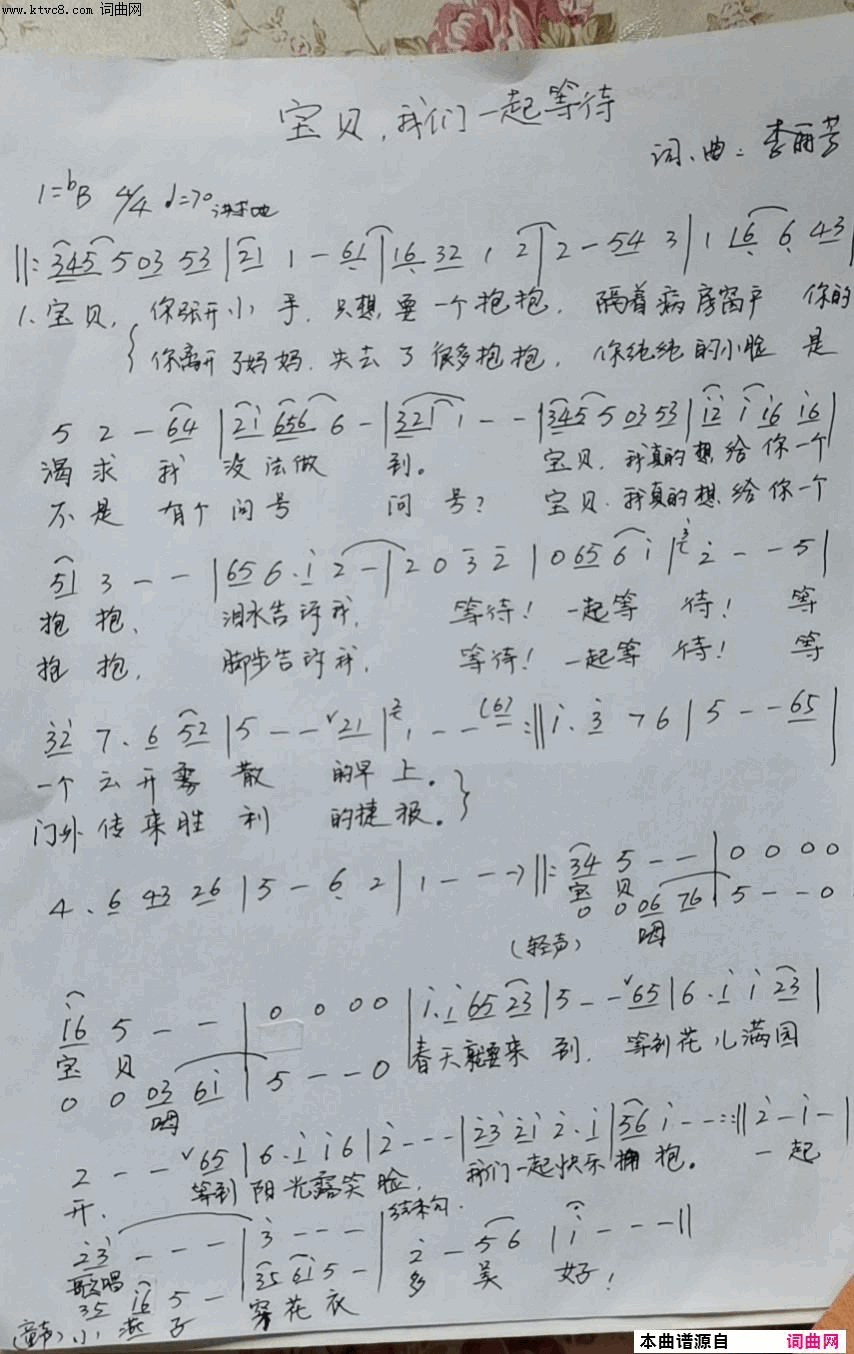 www.ktvc8.com 词曲网
宝贝,我们一起等待
词、曲:李丽芳
1=bB 4/4 ♩=70
‖: 345 5 03 53 | 21 1 - 61 | 16 32 1 2 | 2 - 54 3 | 1 16 6 43 |
1、宝贝, 你张开小手. 只想要一个抱抱, 隔着病房窗户 你的
你离开了妈妈. 失去了很多抱抱, 你纯纯的小脸 是
5 2 - 64 | 2i 656 6 - | 321 1 - - | 345 5 03 53 | i2 i i6 i6 |
渴求 我没法做到。 宝贝, 我真的想给你一个
不是 有个问号 问号? 宝贝. 我真的想给你一个
51 3 - - | 65 6. i 2 - | 2 0 3 2 | 0 65 6 i | 2 - - 5 |
抱抱、 泪水告诉我, 等待! 一起等待! 等
抱抱, 脚步告诉我, 等待! 一起等待! 等
32 7. 6 52 | 5 - - ∨21 | 1 - - (6) :‖ i. 3 7 6 | 5 - - 65 |
一个云开雾散 的早上。
门外传来胜利 的捷报。
4. 6 43 26 | 5 - 6 2 | 1 - - - ‖: 34 5 - - | 0 0 0 0
宝贝
0 0 06 76 | 5 - - 0
(轻声) 嗯
i6 5 - - | 0 0 0 0 | i. i 65 23 | 5 - - ∨65 | 6. i i 23 |
宝贝 春天就要来到. 等到花儿满园
0 0 03 6i | 5 - - 0
嗯
2 - - ∨65 | 6. i i 6 | 2 - - - | 23 2i 2. i | 56 i - - :‖ 2 - i - |
开. 等到阳光露笑脸, 我们一起快乐拥抱。 一起
结束句.
23 - - - | 3 - - - | 2 - 5 6 | i - - - ‖
歌唱 多美好!
35 i6 5 - | 35 6i 5 - |
(童声) 小燕子 穿花衣
本曲谱源自 词曲网